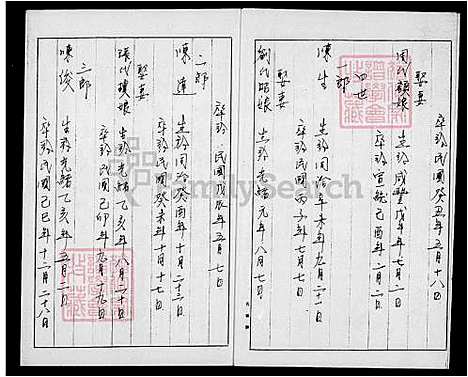 卒於民國癸丑年五月十八日
娶妻
周氏韻娘 生於咸豐戊午年七月二日
卒於宣統己酉年二月二日
四世
一郎
陳生 生於同治辛未年九月二十一日
卒於民國丙子年七月七日
娶妻
劉氏姑娘 生於光緒元年八月七日
卒於民國戊辰年五月七日
二郎
陳達 生於同治癸酉年十月二十三日
卒於民國癸未年十月十七日
娶妻
張氏 娘 生於光緒乙亥年八月二十日
卒於民國己卯年九月十九日
三郎
陳俊 生於光緒乙亥年五月二日
卒於民國己巳年十二月二十八日
FamilySearch